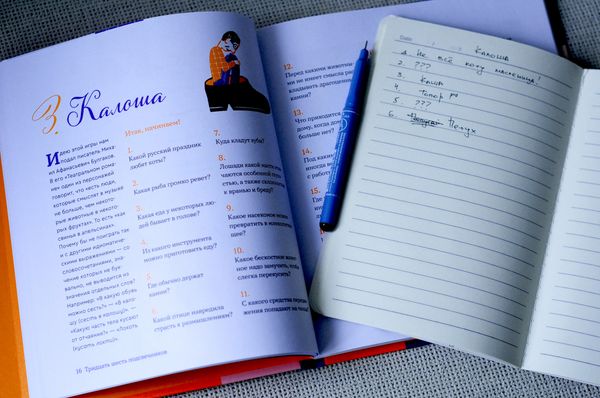 3. Калоша
Идею этой игры нам
подал писатель Миха-
ил Афанасьевич Булгаков.
В его «Театральном рома-
не» один из персонажей
говорит, что «есть люди,
которые смыслят в музыке
не больше, чем некото-
рые животные в некото-
рых фруктах». То есть «как
свинья в апельсинах».
Почему бы не поиграть так
и с другими идиоматиче-
скими выражениями — со
словосочетаниями, зна-
чение которых не бук-
вально, не выводится из
значения отдельных слов?
Например: «В какую обувь
можно сесть?» — «В кало-
шу (сесть в калошу)»,
«Какую часть тела кусают
от отчаяния?» — «Локоть
(кусать локти)».
Итак, начинаем!
1.
Какой русский праздник
любят коты?
2.
Какая рыба громко ревет?
3.
Какая еда у некоторых лю-
дей бывает в голове?
4.
Из какого инструмента
можно приготовить еду?
5.
Где обычно держат
камни?
6.
Какой птице навредила
страсть к размышлениям?
7.
Куда кладут зубы?
8.
Лошади какой масти отли-
чаются особенной глупо-
стью, а также склонностью
к вранью и бреду?
9.
Какое насекомое
превратить в
10.
Какое бескостное живот-
ное надо замучить, чтобы
слегка перекусить?
11.
С какого средства передви-
жения попадают на
12.
Перед какими животны-
ми не имеет смысла рас-
кладывать драгоценные
камни?
13.
Что приходится
дому, когда
больше нет?
14.
Под каким
иногда
с работы
15.
16 Тридцать шесть подсвечников
Date
Калоша
1. Не всё коту масленица!
2. ???
3. Каша
4. Топор
5. ???
6. Петух